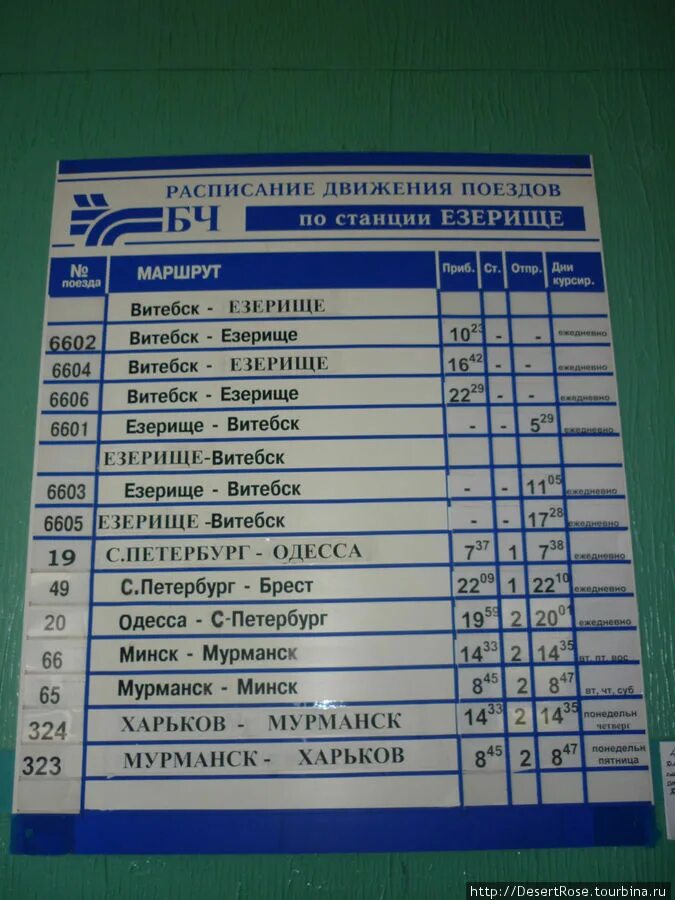 РАСПИСАНИЕ ДВИЖЕНИЯ ПОЕЗДОВ
БЧ по станции ЕЗЕРИЩЕ
№ поезда МАРШРУТ Приб. Ст. Отпр. Дни курсир.
Витебск - ЕЗЕРИЩЕ
6602 Витебск - Езерище 10 23 - - ежедневно
6604 Витебск - ЕЗЕРИЩЕ 16 42 - - ежедневно
6606 Витебск - Езерище 22 29 - - ежедневно
6601 Езерище - Витебск - - 5 29 ежедневно
ЕЗЕРИЩЕ-Витебск
6603 Езерище - Витебск - - 11 05 ежедневно
6605 ЕЗЕРИЩЕ -Витебск - - 17 28 ежедневно
19 С.ПЕТЕРБУРГ - ОДЕССА 7 37 1 7 38 ежедневно
49 С.Петербург - Брест 22 09 1 22 10 ежедневно
20 Одесса - С-Петербург 19 59 2 20 01 ежедневно
66 Минск - Мурманск 14 33 2 14 35 вт, пт, вос
65 Мурманск - Минск 8 45 2 8 47 вт, чт, суб
324 ХАРЬКОВ - МУРМАНСК 14 33 2 14 35 понедельн четверг
323 МУРМАНСК - ХАРЬКОВ 8 45 2 8 47 понедельн пятница
http://DesertRose.tourbina.ru